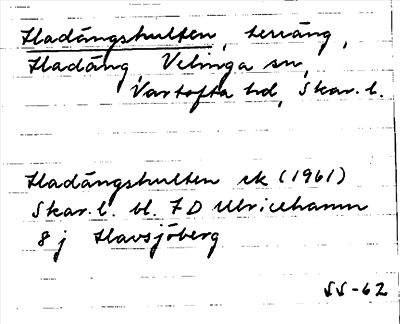 Hladängshulten, terräng,
Hladäng, Velinga sn,
Vartofta hd, Skar. l.
Hladängshulten ek (1961)
Skar. l. bl. 7 D Ulricehamn
8 j Havsjöberg
SS-62